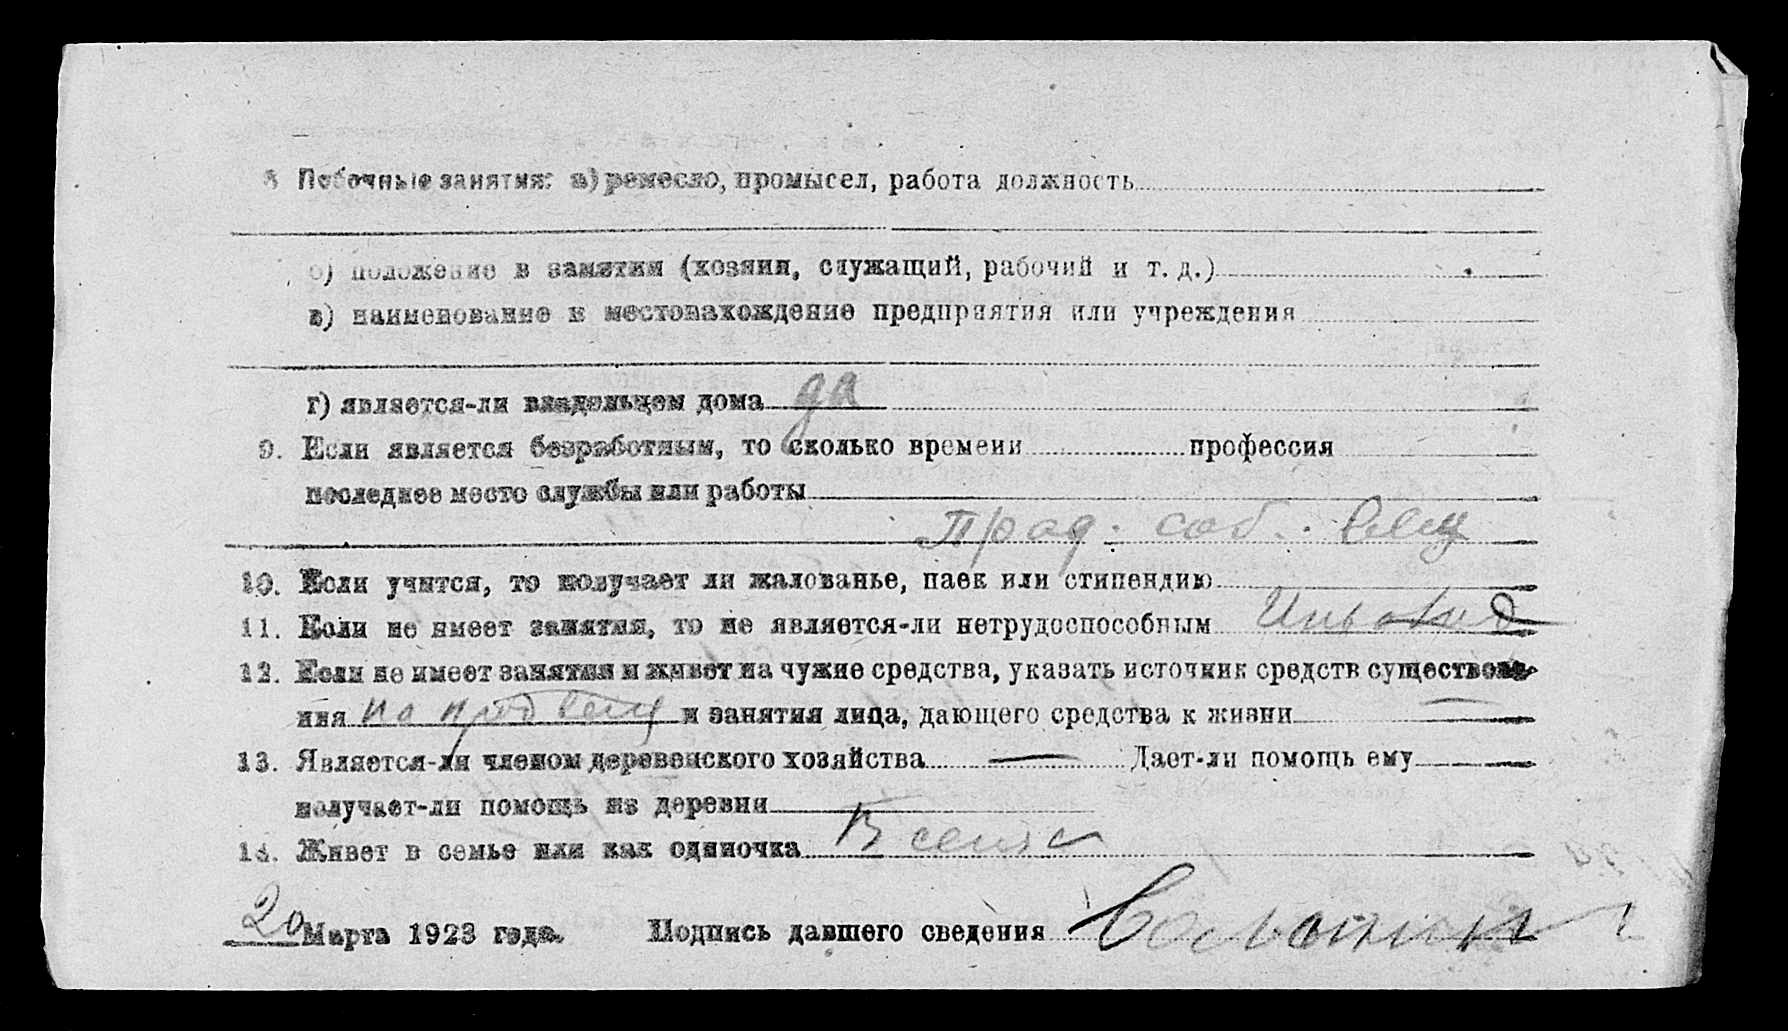 8 Побочные занятия: а) ремесло, промысел, работа должность
б) положение в занятии (хозяин, служащий, рабочий и т. д.)
в) наименование и местонахождение предприятия или учреждения
г) является-ли владельцем дома да
9. Если является безработным, то сколько времени профессия
последнее место службы или работы
Прод. соб. вещ
10. Если учится, то получает ли жалованье, паек или стипендию
11. Если не имеет занятия, то не является-ли нетрудоспособным Инвалид
12. Если не имеет занятия и живет на чужие средства, указать источник средств существова-
ния на прод вещ и занятия лица, дающего средства к жизни —
13. Является-ли членом деревенского хозяйства — Дает-ли помощь ему
получает-ли помощь из деревни
14. Живет в семье или как одиночка В семье
20 Марта 1923 года. Подпись давшего сведения